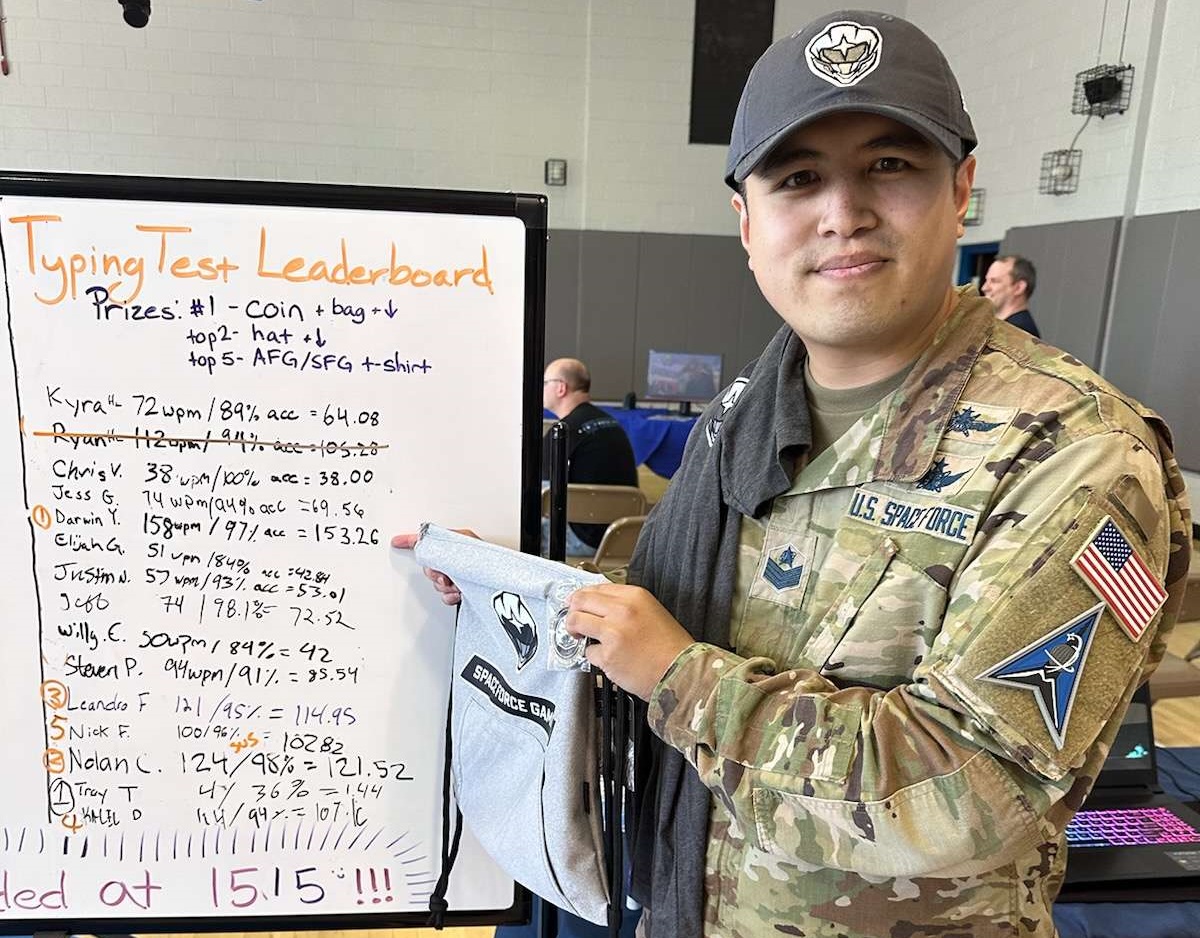 Typing Test Leaderboard
Prizes: #1 - coin + bag + ↓
top 2 - hat + ↓
top 5 - AFG/SFG t-shirt
Kyra 72 wpm / 89% acc = 64.08
Ryan 112 wpm / 94% acc = 105.28
Chris V. 38 wpm/100% acc = 38.00
Jess G. 74 wpm/94% acc = 69.56
① Darwin Y. 158 wpm / 97% acc = 153.26
Elijah G. 51 wpm / 84% acc = 42.84
Justin N. 57 wpm / 93% acc = 53.01
74 / 98.1% = 72.52
Willy. E. 50wpm / 84% = 42
Steven P. 94wpm / 91% = 85.54
③ Leandro F 121 / 95% = 114.95
5 Nick F. 100/96% = 10282
sus
Nolan C. 124 / 98% = 121.52
① Tray T 4% 36% = 1.44
4 KALIL D
ded at 15:15 !!!
SPACE FORCE GAM
U.S. SPACE FORCE